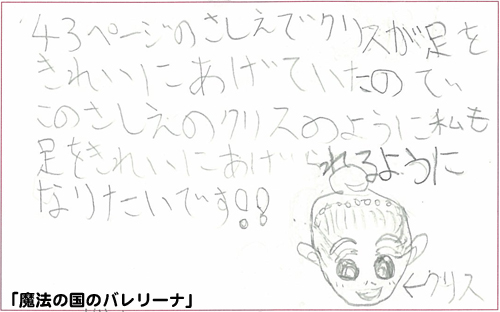 43ページのさしえでクリスが足を
きれいにあげていたので
このさしえのクリスのように私も
足をきれいにあげられるように
なりたいです!!
←クリス
「魔法の国のバレリーナ」